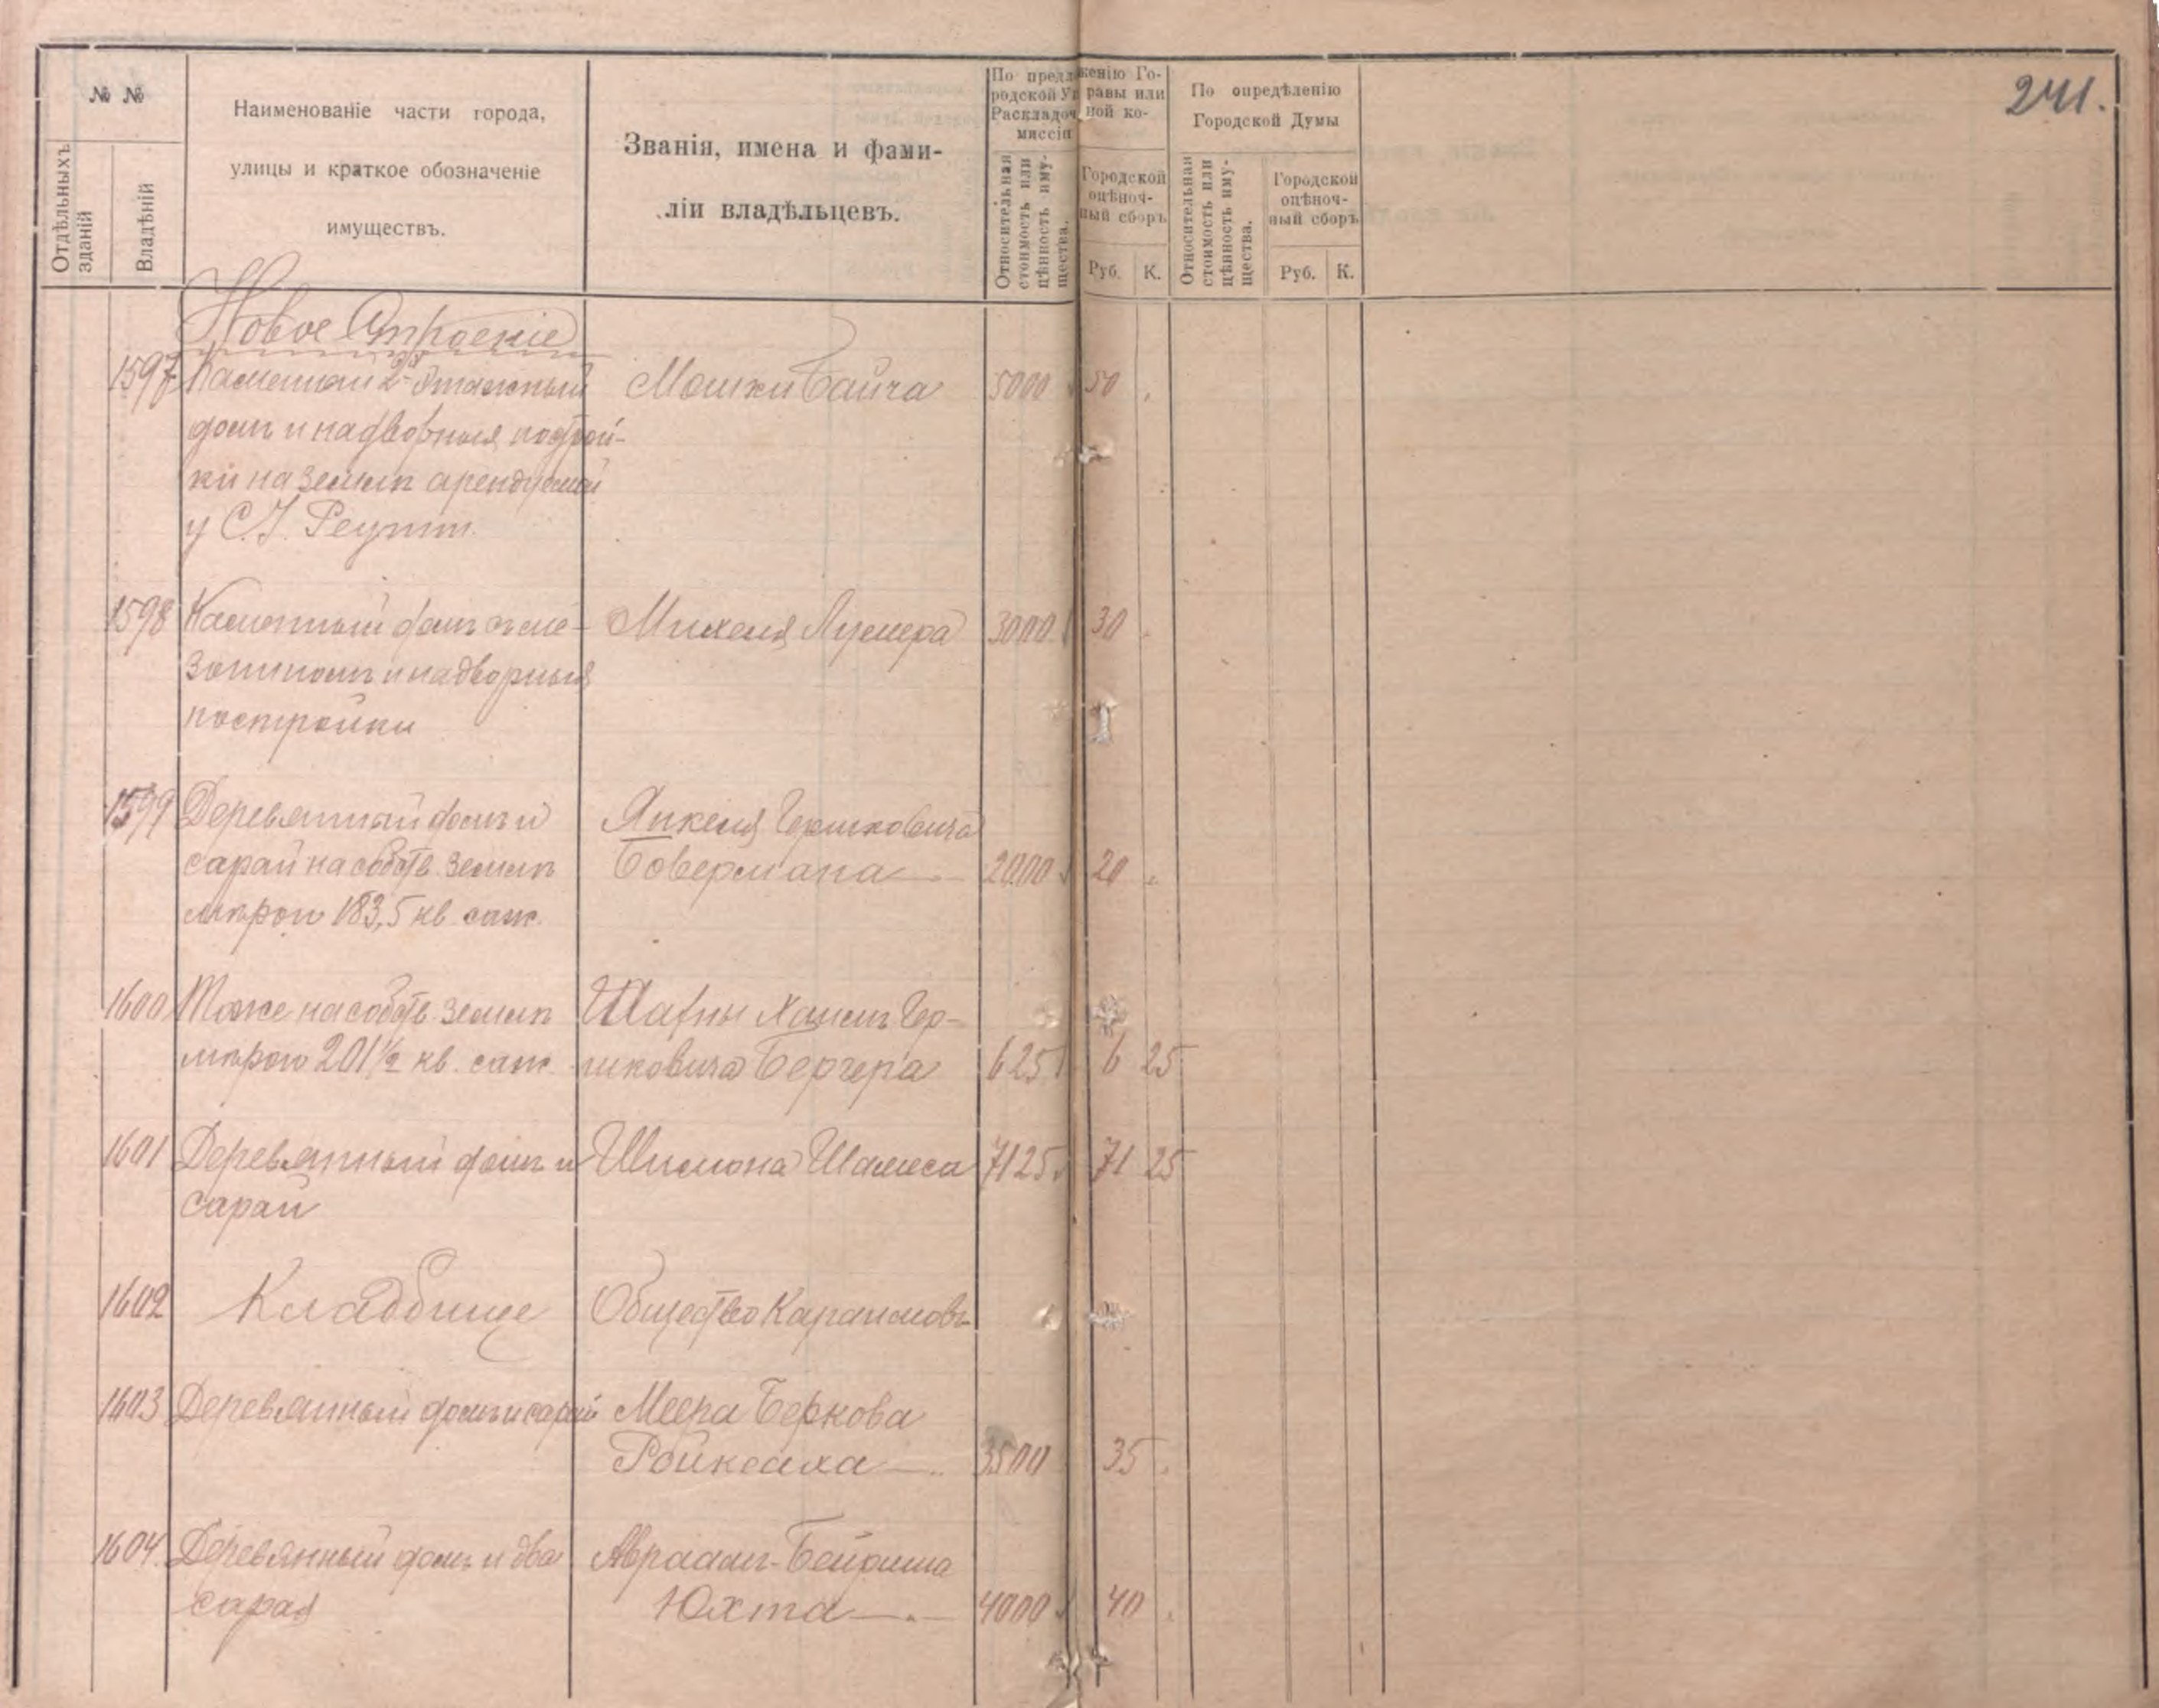 241.
№ №
Отдѣльныхъ зданій
Владѣній
Наименованіе части города,
улицы и краткое обозначеніе
имуществъ.
Званія, имена и фами-
ліи владѣльцевъ.
По предложенію Го-
родской Управы или
Раскладочной ко-
миссіи
Относительная стоимость или цѣнность иму-щества.
Городской
оцѣноч-
ный сборъ
Руб. К.
По опредѣленію
Городской Думы
Относительная стоимость или цѣнность иму-щества.
Городской
оцѣноч-
ный сборъ
Руб. К.
Новое Строеніе
1597 Каменный 2хъ этажный Мошки 5000 50
домъ и надворныя построй-
ки на землѣ арендуемой
у С.І. Реуттъ.
1598 Каменный домъ съ ме- Михеля 3000 30
зониномъ и надворныя
постройки
1599 Деревянный домъ и Янкеля Гершковича
сарай на собств. землѣ Бовермана 2000 20
мѣрою 183,5 кв. саж.
1600 Тоже на собств. землѣ Шафны Хаимъ Гер-
мѣрою 201½ кв. саж. шковича Бергера 625 6 25
1601 Деревянный домъ и Шимона Шамеса 7125 71 25
сарай
1602 Кладбище Общество Караимовъ
1603 Деревянный домъ и сарай Меера Беркова
3500 35
1604. Деревянный домъ и два Авраамъ-Бейриша
сарая Юхта 4000 40